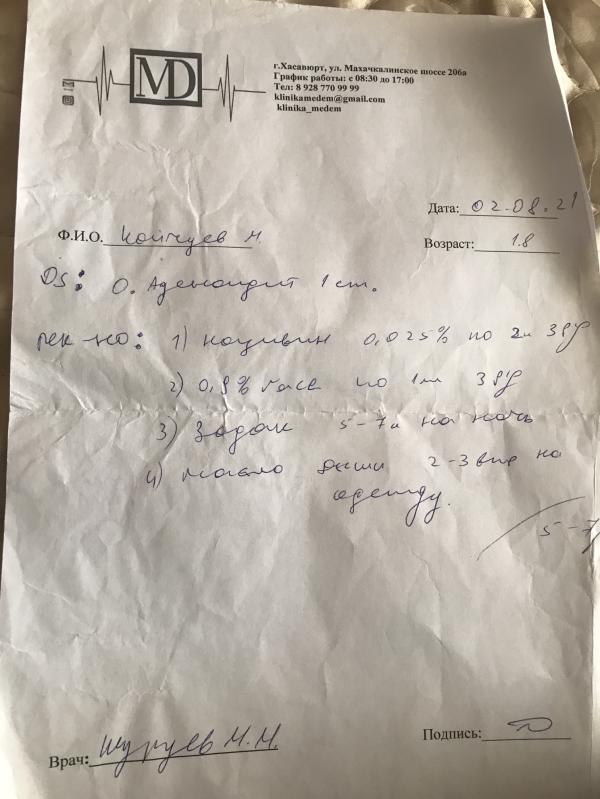 MD
г.Хасавюрт, ул. Махачкалинское шоссе 206а
График работы: с 08:30 до 17:00
Тел: 8 928 770 99 99
klinikamedem@gmail.com
klinika_medem
Дата: 02.08.21
Ф.И.О. М.
Возраст: 1.8
DS: О. Аденоидит 1 ст.
рек-но: 1) називин 0,025% по 2к 3 р/д
2) 0,9% по 3 р/д
3) Зодак 5-7к на ночь
4) масло дыши 2-3 на
одежду.
5-7
Врач: Шуруев М.М.
Подпись: